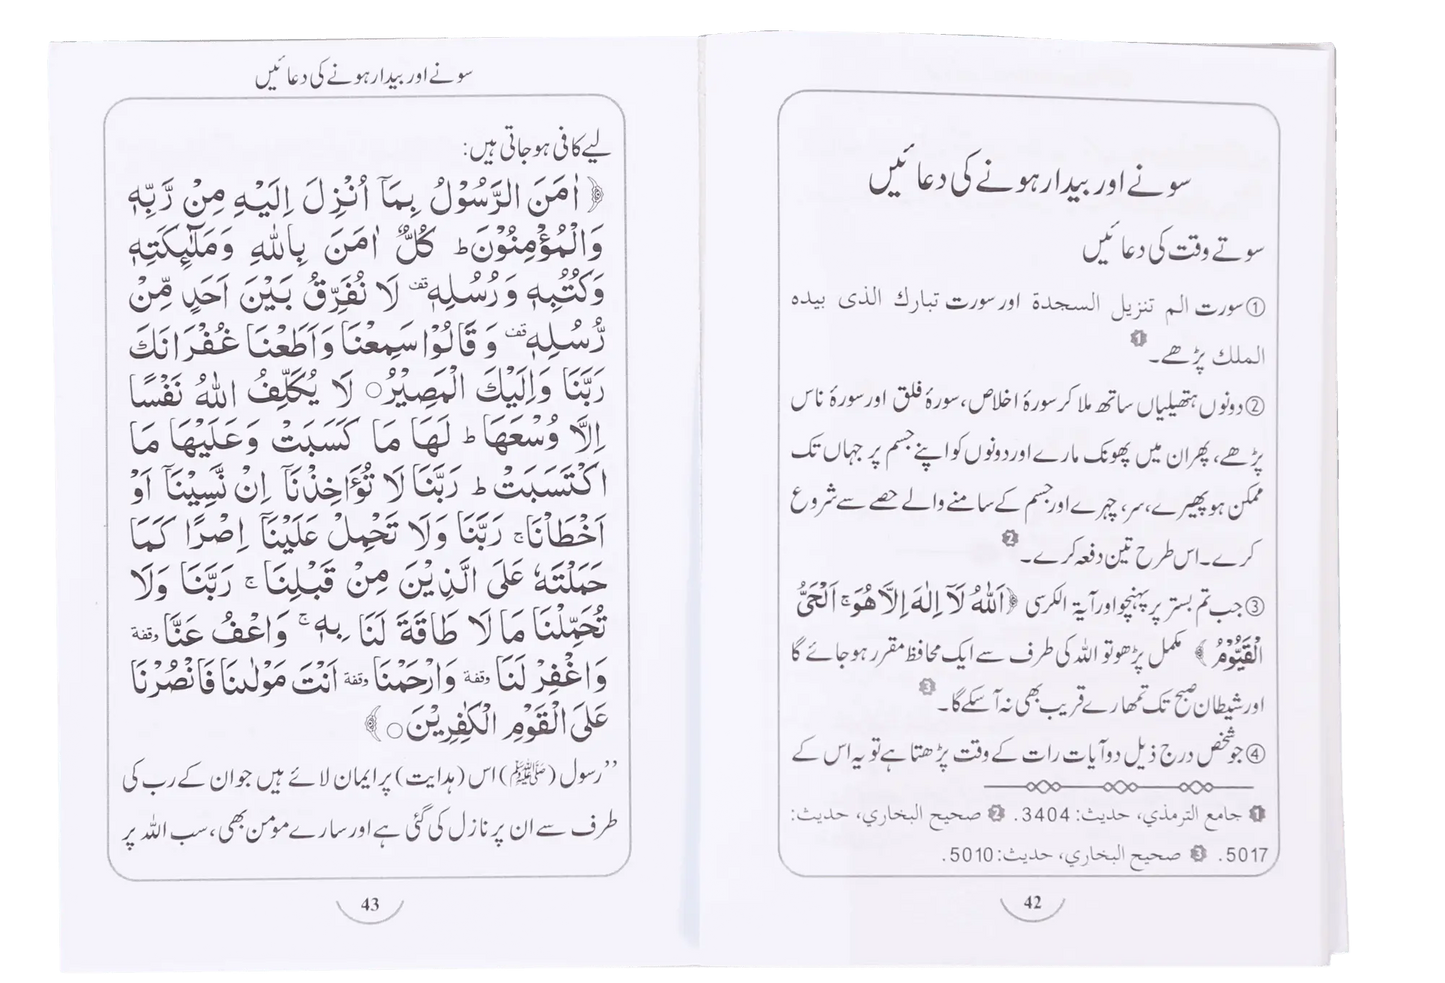 سونے اور بیدار ہونے کی دعائیں
سوتے وقت کی دعائیں
①سورت الم تنزیل السجدة اور سورت تبارك الذی بیده
الملك پڑھے۔❶
②دونوں ہتھیلیاں ساتھ ملا کر سورۂ اخلاص، سورۂ فلق اور سورۂ ناس
پڑھے، پھر ان میں پھونک مارے اور دونوں کو اپنے جسم پر جہاں تک
ممکن ہو پھیرے، سر، چہرے اور جسم کے سامنے والے حصے سے شروع
کرے۔ اس طرح تین دفعہ کرے۔❷
③جب تم بستر پر پہنچو اور آیۃ الکرسی ﴿اَللّٰهُ لَآ اِلٰهَ اِلَّا هُوَ ۚ اَلْحَيُّ
الْقَيُّوْمُ﴾ مکمل پڑھو تو اللہ کی طرف سے ایک محافظ مقرر ہو جائے گا
اور شیطان صبح تک تمھارے قریب بھی نہ آ سکے گا۔❸
④جو شخص درج ذیل دو آیات رات کے وقت پڑھتا ہے تو یہ اس کے
❶ جامع الترمذي، حديث: 3404. ❷ صحيح البخاري، حديث:
5017. ❸ صحيح البخاري، حديث: 5010.
42
سونے اور بیدار ہونے کی دعائیں
لیے کافی ہو جاتی ہیں:
﴿اٰمَنَ الرَّسُوْلُ بِمَآ اُنْزِلَ اِلَيْهِ مِنْ رَّبِّهٖ
وَالْمُؤْمِنُوْنَ ؕ كُلٌّ اٰمَنَ بِاللّٰهِ وَمَلٰٓئِكَتِهٖ
وَكُتُبِهٖ وَرُسُلِهٖ قف لَا نُفَرِّقُ بَيْنَ اَحَدٍ مِّنْ
رُّسُلِهٖ قف وَقَالُوْا سَمِعْنَا وَاَطَعْنَا غُفْرَانَكَ
رَبَّنَا وَاِلَيْكَ الْمَصِيْرُ○ لَا يُكَلِّفُ اللّٰهُ نَفْسًا
اِلَّا وُسْعَهَا ؕ لَهَا مَا كَسَبَتْ وَعَلَيْهَا مَا
اكْتَسَبَتْ ؕ رَبَّنَا لَا تُؤَاخِذْنَآ اِنْ نَّسِيْنَآ اَوْ
اَخْطَاْنَا ۚ رَبَّنَا وَلَا تَحْمِلْ عَلَيْنَآ اِصْرًا كَمَا
حَمَلْتَهٗ عَلَى الَّذِيْنَ مِنْ قَبْلِنَا ۚ رَبَّنَا وَلَا
تُحَمِّلْنَا مَا لَا طَاقَةَ لَنَا بِهٖ ۚ وَاعْفُ عَنَّا وقفة
وَاغْفِرْ لَنَا وقفة وَارْحَمْنَا وقفة اَنْتَ مَوْلٰىنَا فَانْصُرْنَا
عَلَى الْقَوْمِ الْكٰفِرِيْنَ○﴾
’’رسول (ﷺ) اس (ہدایت) پر ایمان لائے ہیں جو ان کے رب کی
طرف سے ان پر نازل کی گئی ہے اور سارے مومن بھی، سب اللہ پر
43